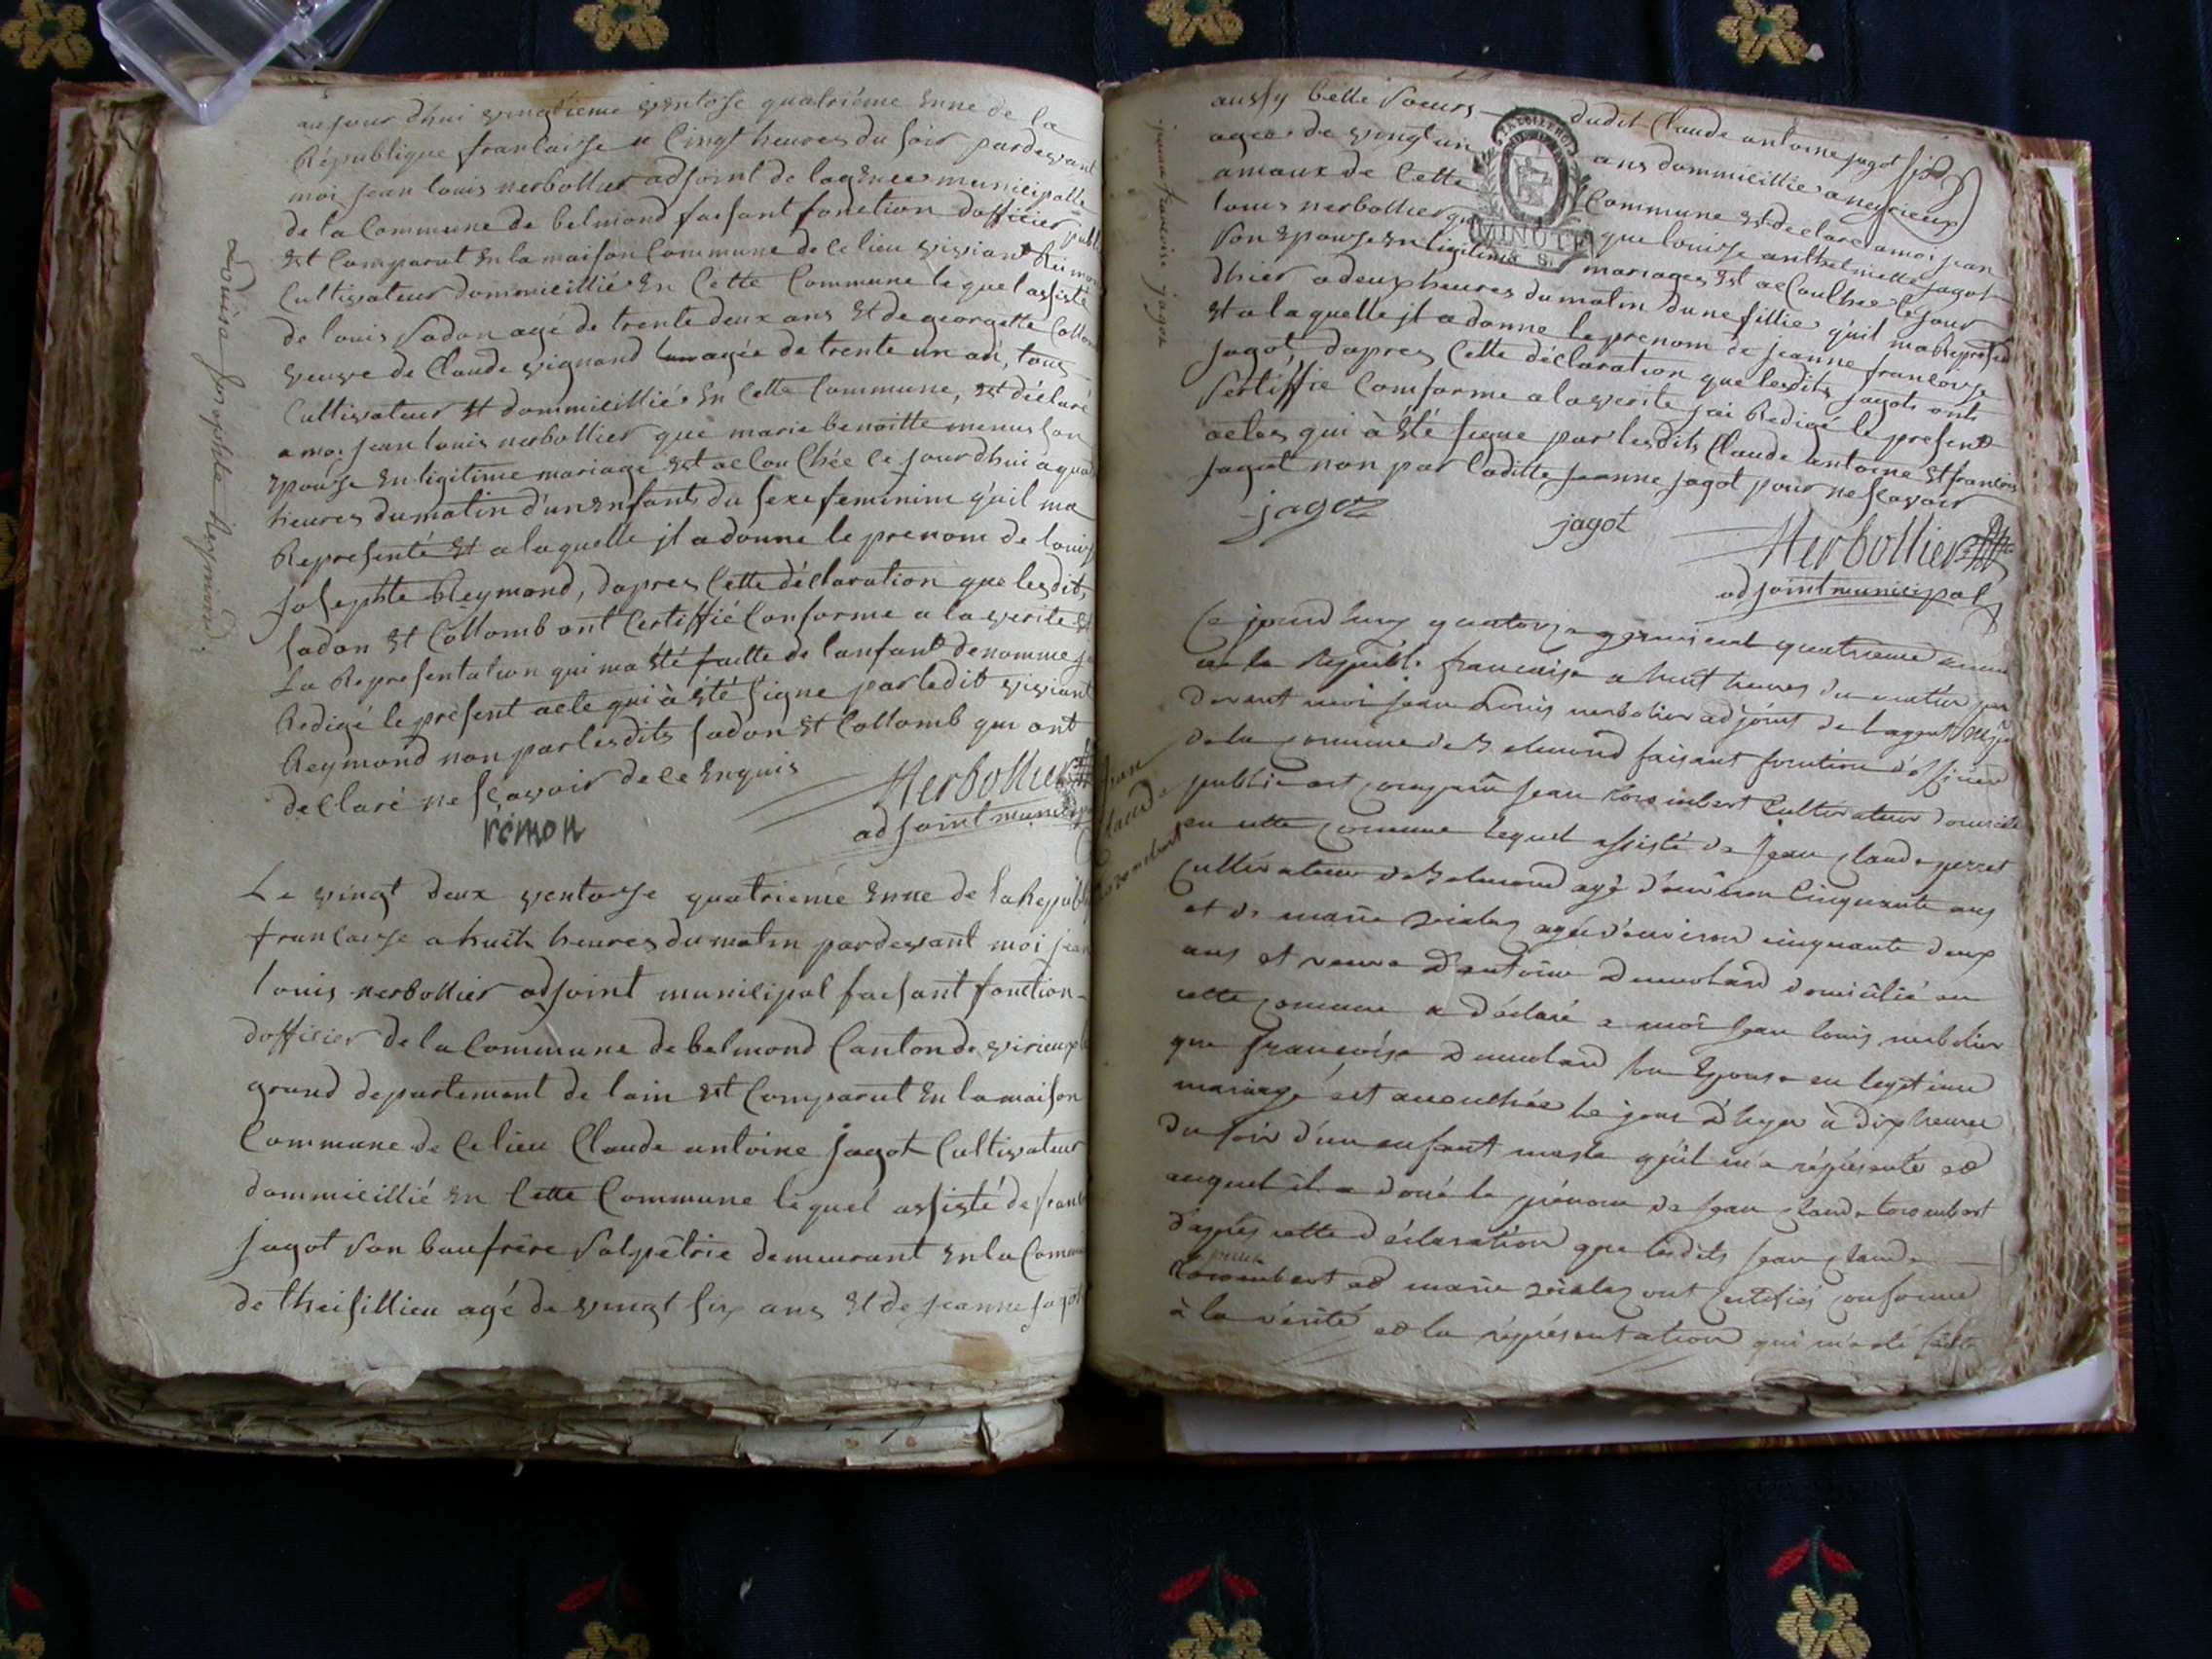 aujourdhui vingtieme ventose quatriéme enne de la
République francaisse a cinqt heures du soir pardevant
moi jean louis nerbollier adjoint de lagence municipalle
de la Commune de belmond faisant fonction dofficier publ
est Comparut en la maison Commune de ce lieu vivian Rémon
Cultivateur dommicillié En Cette Commune le quel assisté
de louis Sadon agé de trente deux ans Et de georgette Collom
veuve de Claude vignand agée de trente un an, tous
Cultivateur Et dommicillié En Cette Commune, Est déclaré
a moi jean louis nerbollier que marie benoitte menus son
Epouse En ligitime mariage Est accouchée ce jourdhui a quat
heures du matin d'un Enfant du sexe feminim qu'il ma
Representé Et a laquelle jl a donné le prenom de louis
Josephte Reymond, dapres Cette déclaration que lesdits
Sadon Et Collomb ont Certiffié Conforme a la verite Et
La Representation qui ma été faitte de lanfant denommé j
Redigé le present acte qui à été signe par ledit viviant
Reymond non par lesdits Sadon Et Collomb qui ont
declaré ne sçavoir de ce Enquis
rémon
Nerbollier
adjoint municip
Louise Josephte Reymond
Le vingt deux ventosse quatrieme Enne de la Republ
francaisse a huit heures du matin pardevant moi jean
louis nerbollier adjoint municipal faisant fonction
dofficier de la Commune de belmond Canton de virieux le
grand departement de lain Est Comparut En la maison
Commune de Celieu Claude antoine jagot Cultivateur
dommicillié En Cette Commune le quel assisté de francois
jagot son baufrére salpétrie demeurant En la Commune
de theisillieu agé de vingt six ans Et de jeanne jagot
aussy belle soeurs dudit Claude antoine jagot
agée de vingt un ans dommicilliée a neyrieux
amaux de Cette Commune Est declare a moi jean
louis nerbollier que louisse anthelmette jagot
son Epouse En ligitime mariages Est accouchée le jour
dhier a deux heures du matin dune fillie qu'il ma Represen
Et a laquelle jl a donne le prenom de jeanne francoise
jagot, dapres Cette déclaration que lesdits jagots ont
Sertiffie Comforme a la verite jai Redigé le present
actes qui à Eté signe par lesdits Claude antoine Et francois
jagot non par laditte jeanne jagot pour ne scavoir
jagoz
jagot
Nerbollier
adjoint municipal
jeanne francoise jagot
Ce jourd'huy quatorze germinal quatrieme année
de la Republi francaise a huit heures du matin par
devant moi jean Louis nerbolier adjoint de l'agent
de la commune de Belmond faisant fonction d'officier
public est comparû jean Corombert Cultivateur domicilié
en cette commune lequel assisté de jean claude perret
cultivateur de Belmond agé d'environ cinquante ans
et de marie agée d'environ cinquante deux
ans et veuve d'antoine Dumolard domicilié en
cette commune a déclaré a moi jean louis nerbolier
que françoise Dumolard son Epouse en legitime
mariage est accouchée le jour d'hyer à dix heures
du soir d'un enfant masle qu'il m'a réprésenté et
auquel il a donné le prénom de jean claude Corombert
d'après cette déclaration que lesdits jean claude
perret
Corombert et marie ont certifié conforme
à la vérité et la réprésentation qui m'a été faite
jean
claude
Corombert
MINUTE